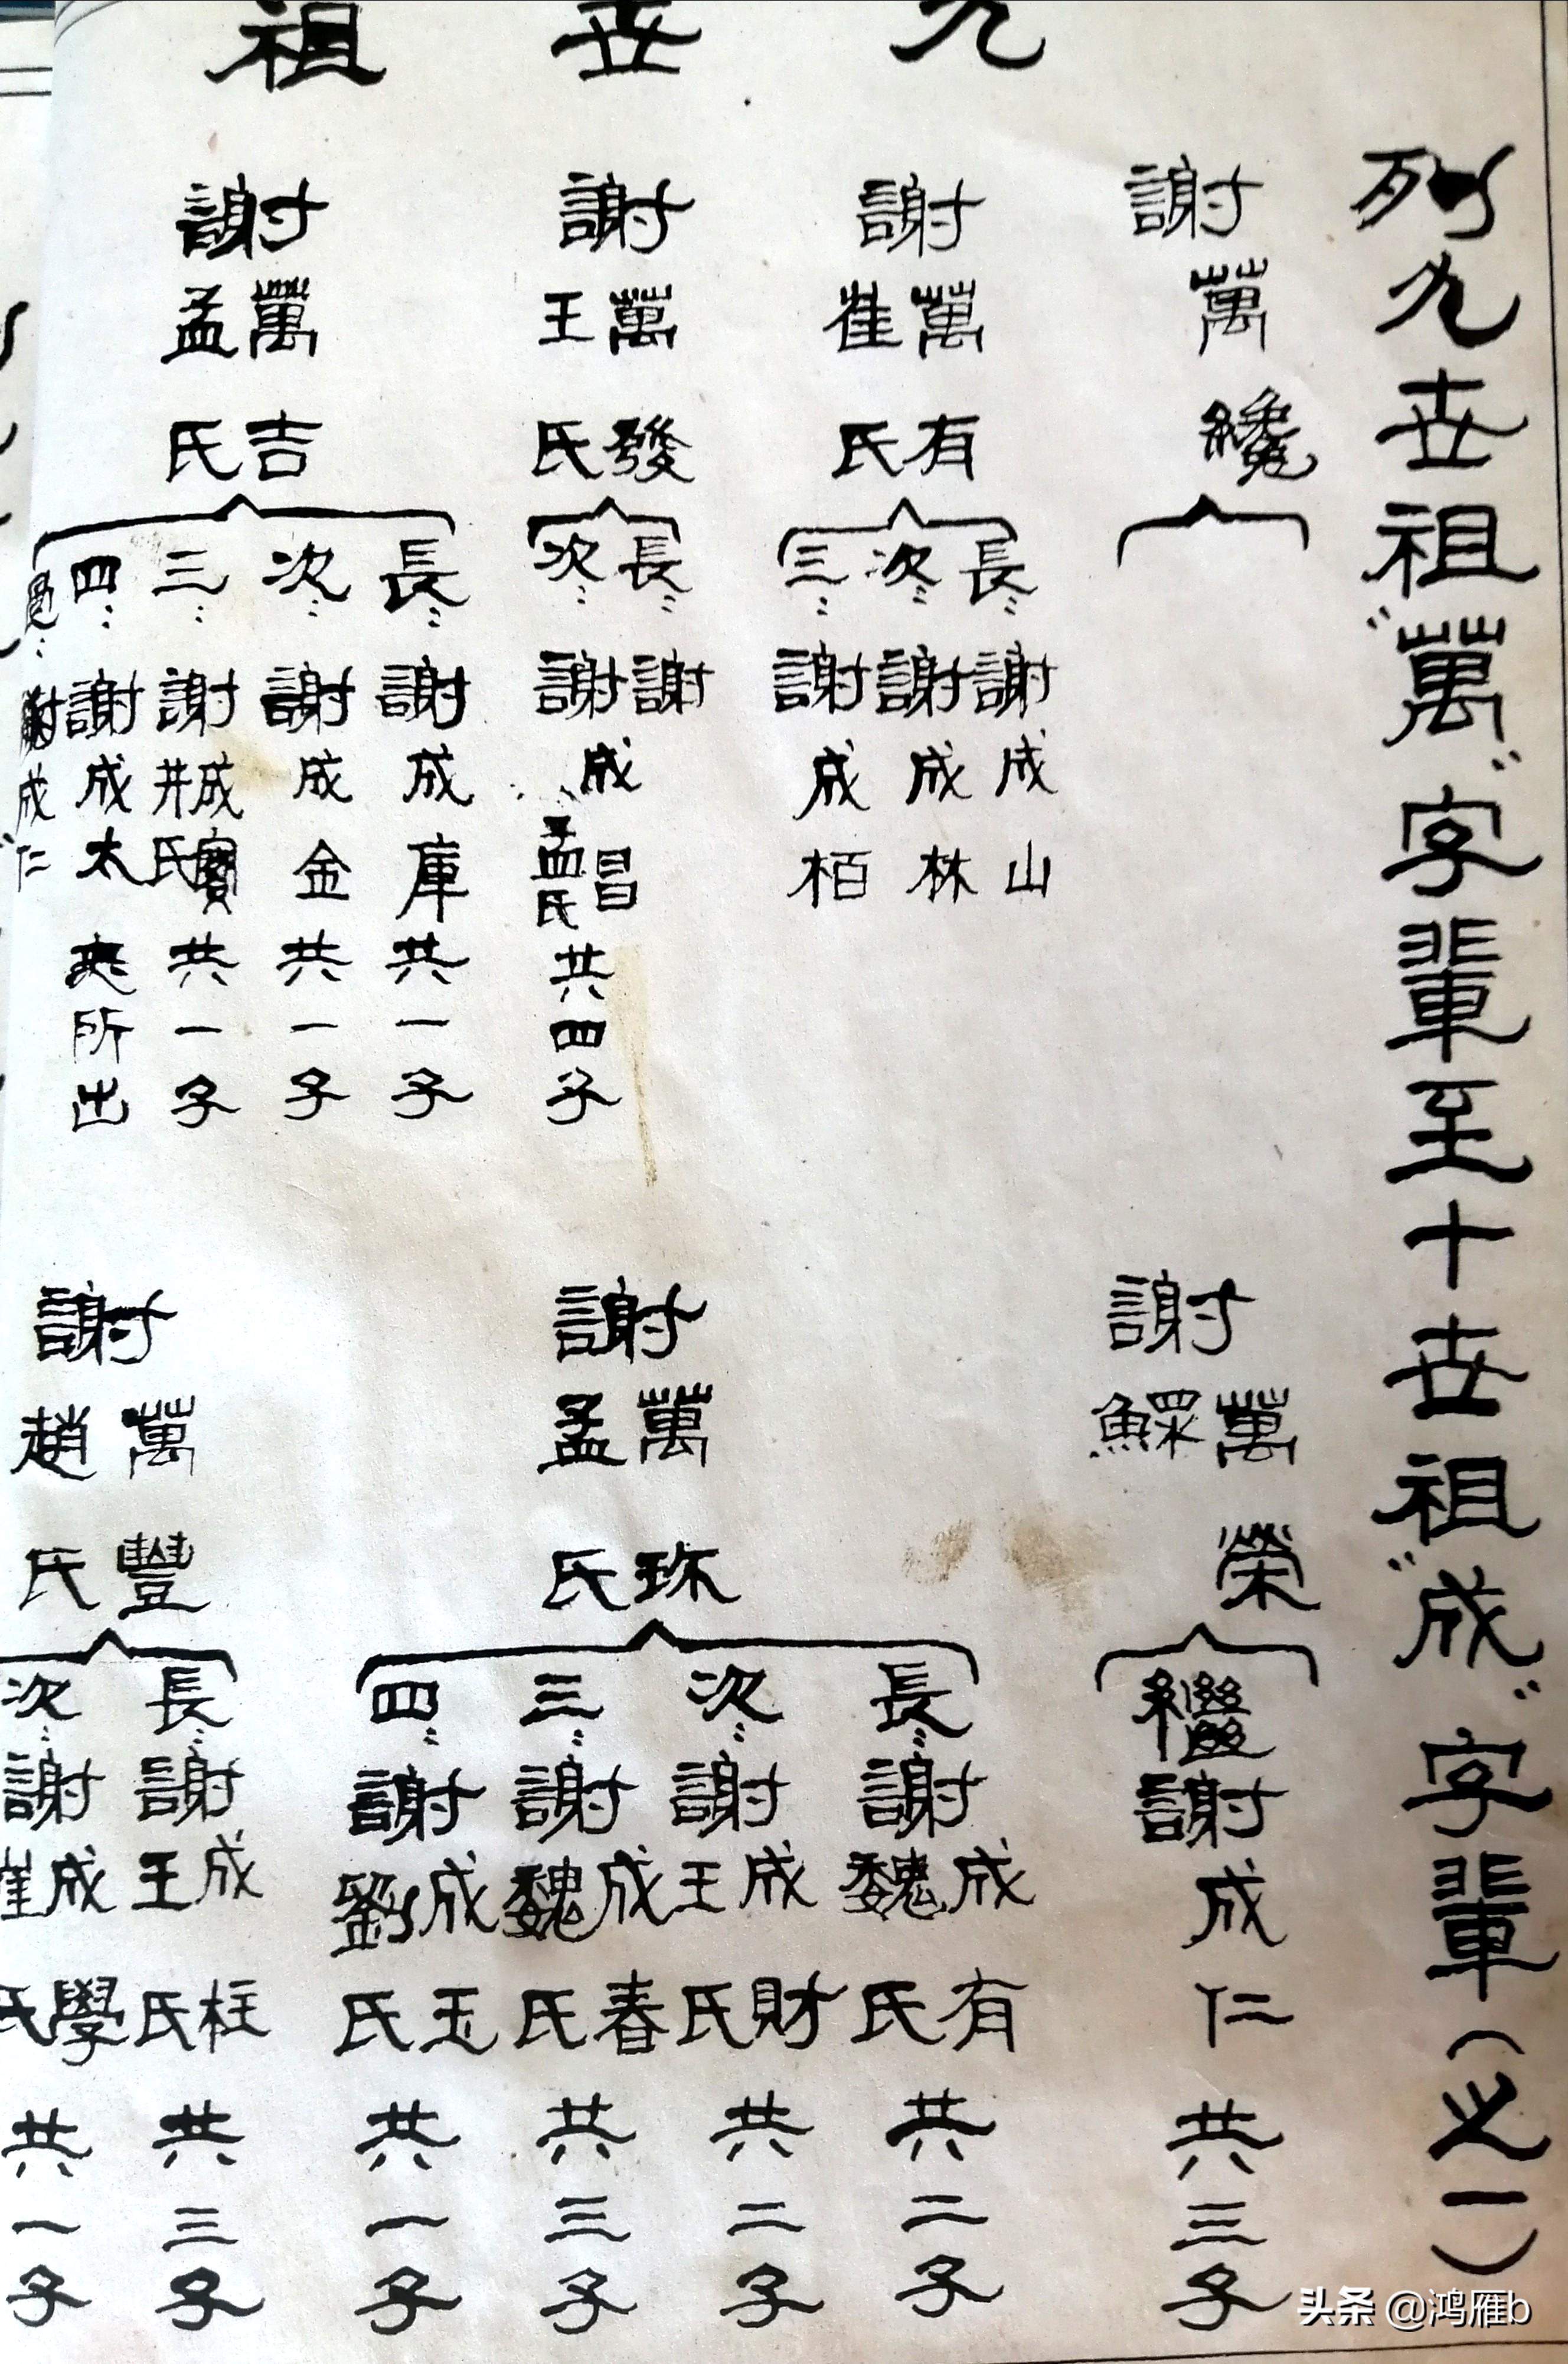 九世祖
列九世祖"萬"字輩至十世祖"成"字輩(之一)
謝萬纔
謝萬有
崔氏
長:謝成山
次:謝成林
三:謝成栢
謝萬發
王氏
長:謝
次:謝
成昌
孟氏
共四子
謝萬吉
孟氏
長:謝成庫共一子
次:謝成金共一子
三:謝成寶
井氏
共一子
四:謝成太
所出
謝成仁
謝萬榮
鰥
繼謝成仁共三子
謝萬珎
孟氏
長:謝成有
魏氏
共二子
次:謝成財
王氏
共二子
三:謝成春
魏氏
共三子
四:謝成玉
劉氏
共一子
謝萬豐
趙氏
長:謝成柱
王氏
共三子
次:謝成學
崔氏
共一子
头条 @鸿雁b